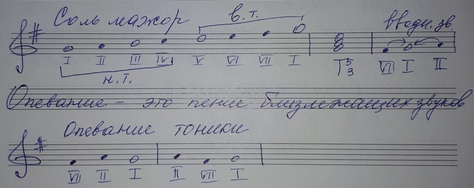 Соль мажор в.т. вводн. зв
I II III IV V VI VII I T5 3 VII I II
н.т.
Опевание - это пение близлежащих звуков
Опевание тоники
VII II I II VII I